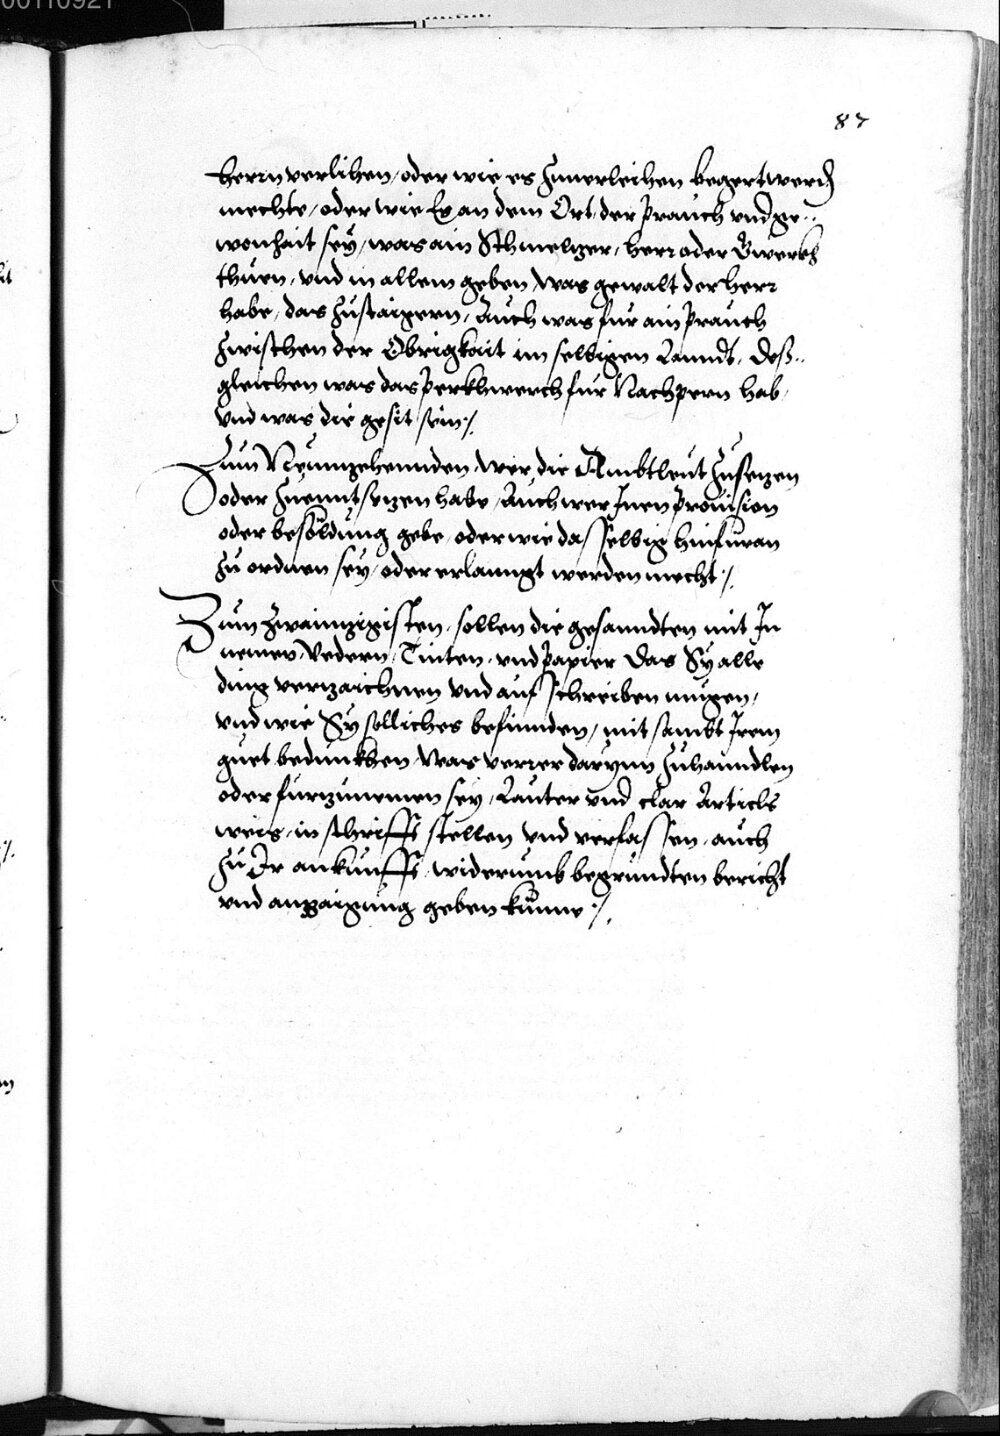 00110921
87
herrn verlihen, oder wie es zuuerleihen begert werdn
mechte, oder wie Er an dem Ort, der Prauch vnd ge¨
wonhait sey, was ain Schmelzer, herr oder Gwerkh
thuen, vnd in allem geben, was gewalt der herr
habe, das zustaigern, Auch was fur ain Prauch
zwischen der Obrigkait im selbigen Lanndt, Deß¨
gleichen was das Perkhwerch fur Nachpern hab,
vnd was die gesit sein ⁒
Zum Neunzehennden, Wer die Ambtleut zusetzen
oder zuenntsetzen habe, Auch wer Jnen Prouision
oder besöldung gebe, oder wie dasselbig hinfuran
zu ordnen sey, oder erlanngt werden mecht ⁒
Zum Zwainzigisten, sollen die gesanndten mit In
nemen, Vedern, Tinten, vnd Papier, Das Sy alle
ding verzaichnen vnd aufschreiben mugen,
vnd wie Sy solliches befinnden, mit sambt Jrem
guet bedunkhen, Was verrer darynn zuhanndlen
oder furzunemen sey, Lauter vnd clar Articls
weis, in schrifft stellen vnd verfassen, auch
zu Ir ankunfft, widerumb begrundten bericht
vnd anzaigung geben kunne ⁒